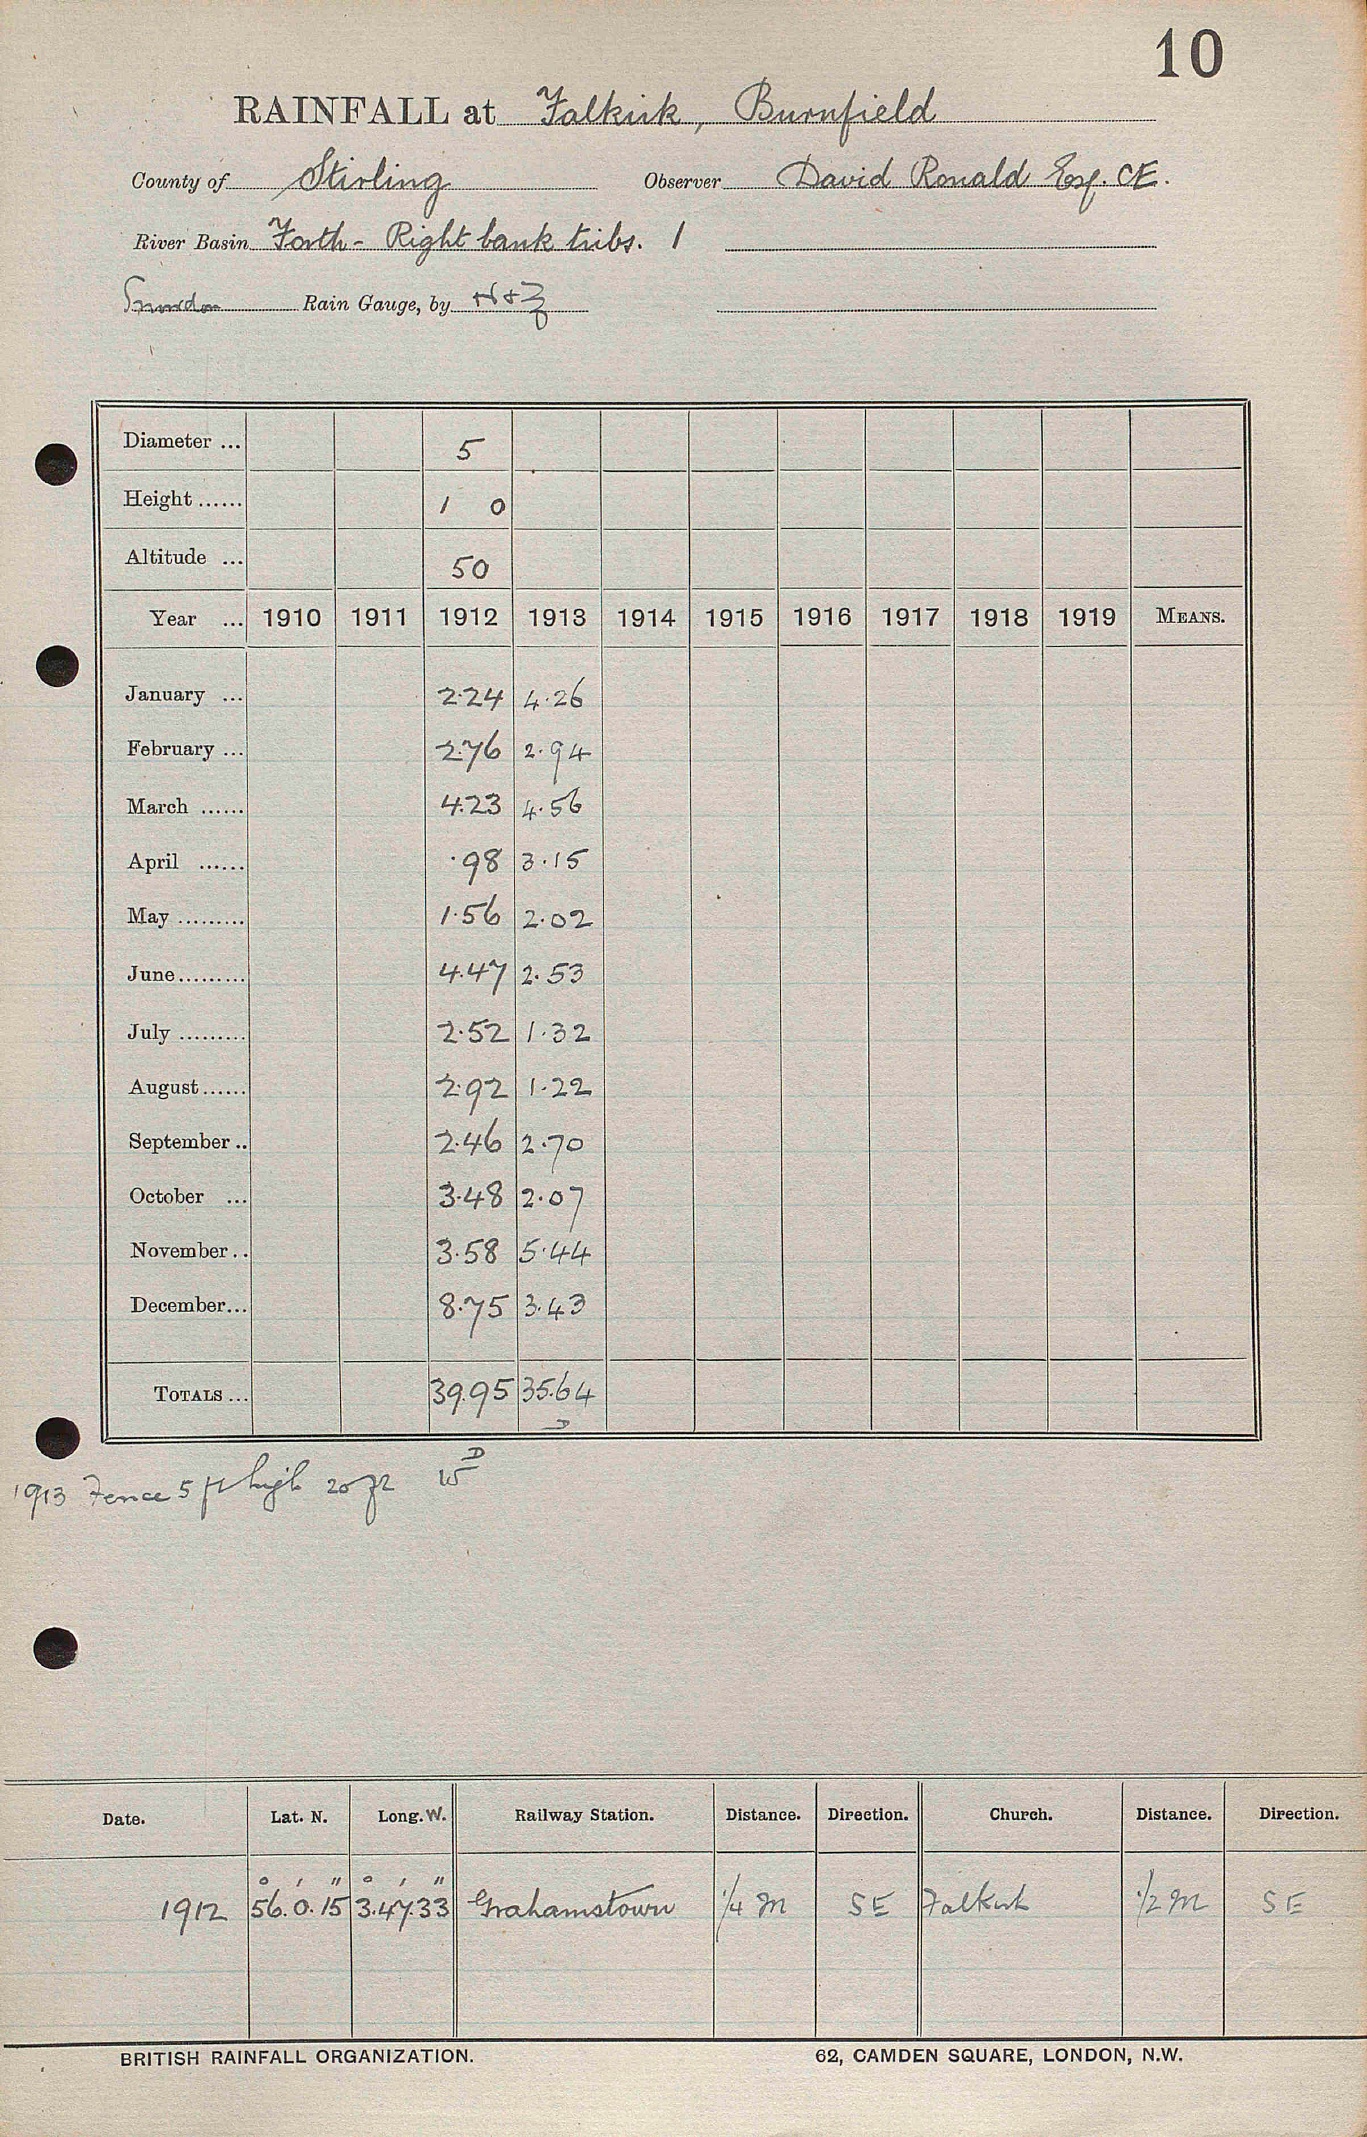 10
RAINFALL at Falkirk, Burnfield
County of Stirling Observer David Ronald Esq. C.E.
River Basin Forth - Right bank tribs. 1
Snowdon Rain Gauge, by N+Z
Diameter ... 5
Height ...... 1 0
Altitude ... 50
Year ... 1910 1911 1912 1913 1914 1915 1916 1917 1918 1919 MEANS.
January ... 2.24 4.26
February ... 2.76 2.94
March ...... 4.23 4.56
April ...... .98 3.15
May ......... 1.56 2.02
June......... 4.47 2.53
July ......... 2.52 1.32
August...... 2.92 1.22
September .. 2.46 2.70
October ... 3.48 2.07
November .. 3.58 5.44
December... 8.75 3.43
TOTALS ... 39.95 35.64
D
1913 Fence 5 ft high 20 ft W D
Date. Lat. N. Long. W. Railway Station. Distance. Direction. Church. Distance. Direction.
° ′ ″ ° ′ ″
1912 56. 0. 15 3.47.33 Grahamstown 1/4 M SE Falkirk 1/2 M SE
BRITISH RAINFALL ORGANIZATION. 62, CAMDEN SQUARE, LONDON, N.W.